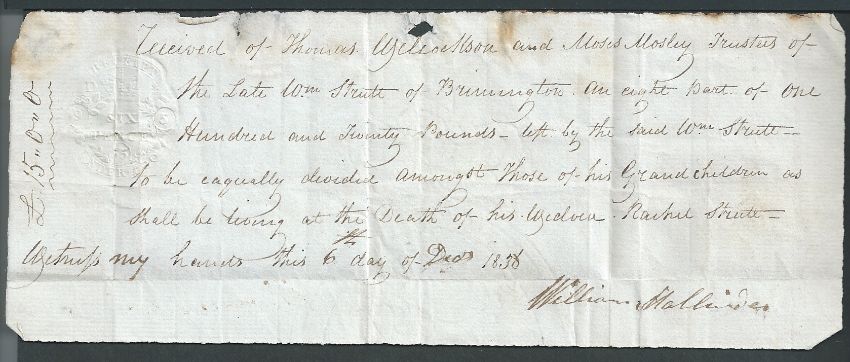 Received of Thomas Wilcockson and Moses Mosley Trustes of
the Late Wm Strutt of Brimington An eight Part of One
Hundred and Twenty Pounds - left by the said Wm Strutt -
to be eaqually divided Amongst Those of his Grandchildren as
shall be living at the Death of his Widow Rachel Strutt -
Witness my hands this 6th day of Decr
William
£15"0"0
SIX